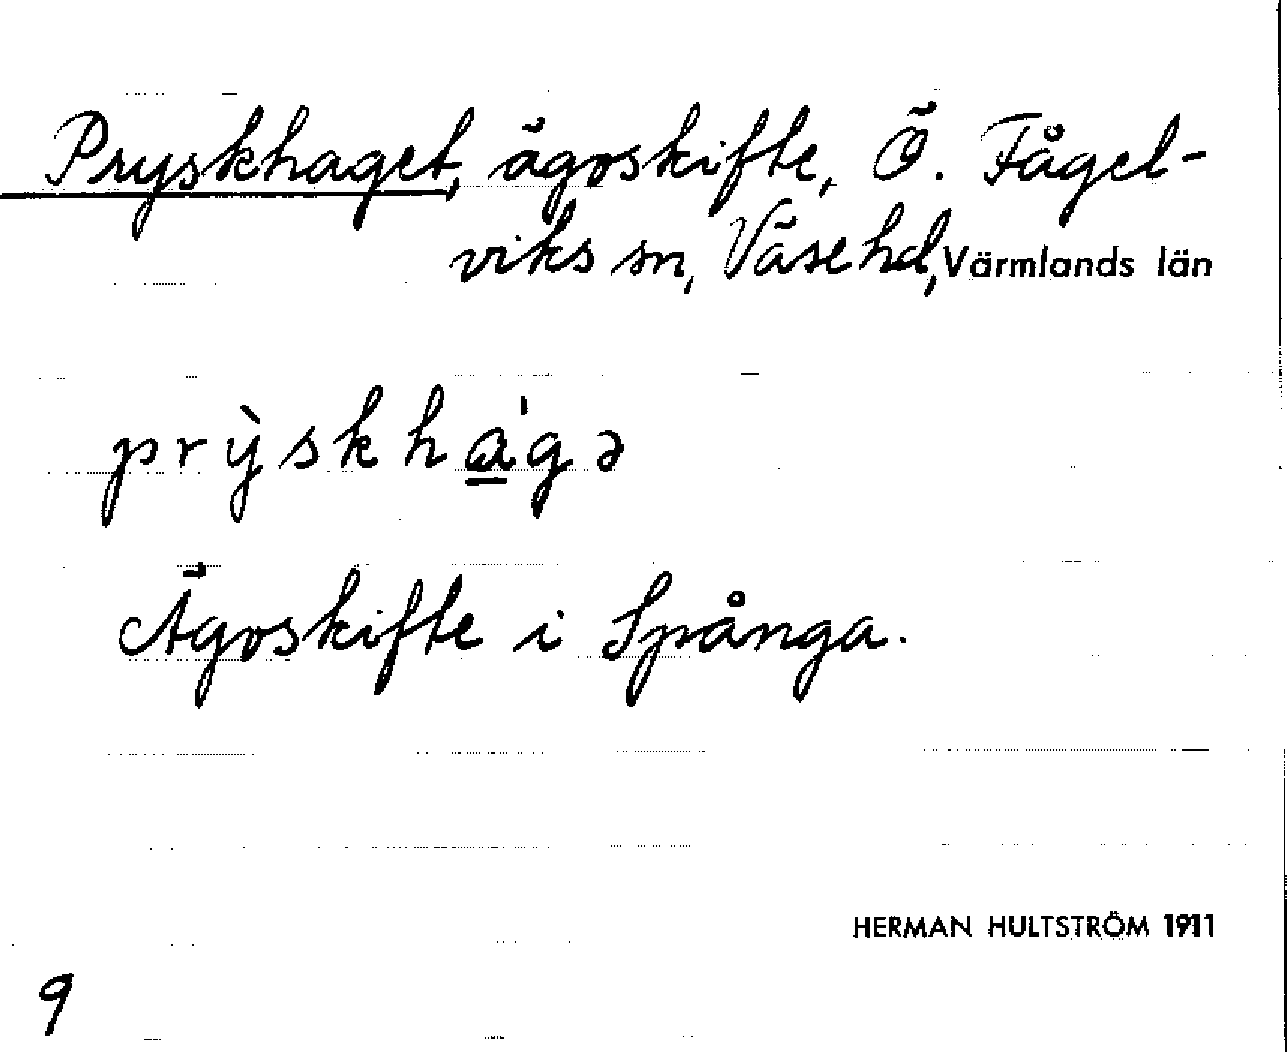 Pryskhaget, ägoskifte, Ö. Fågel-
viks sn, Väse hd, Värmlands län
prỳskha̲'gə
Ägoskifte i Spånga.
HERMAN HULTSTRÖM 1911
9